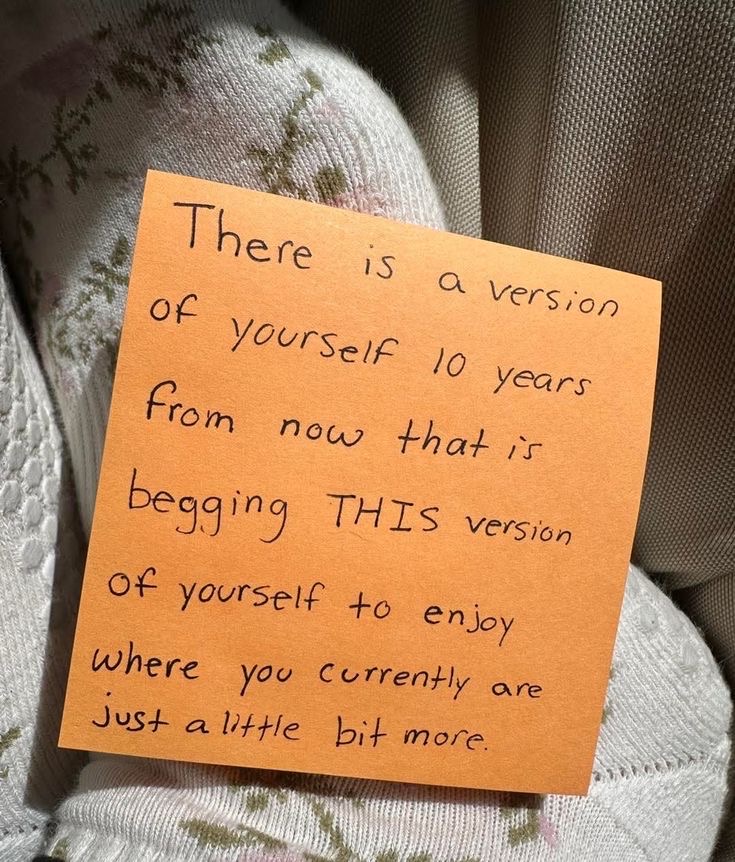 There is a version
of yourself 10 years
from now that is
begging THIS version
of yourself to enjoy
where you currently are
just a little bit more.